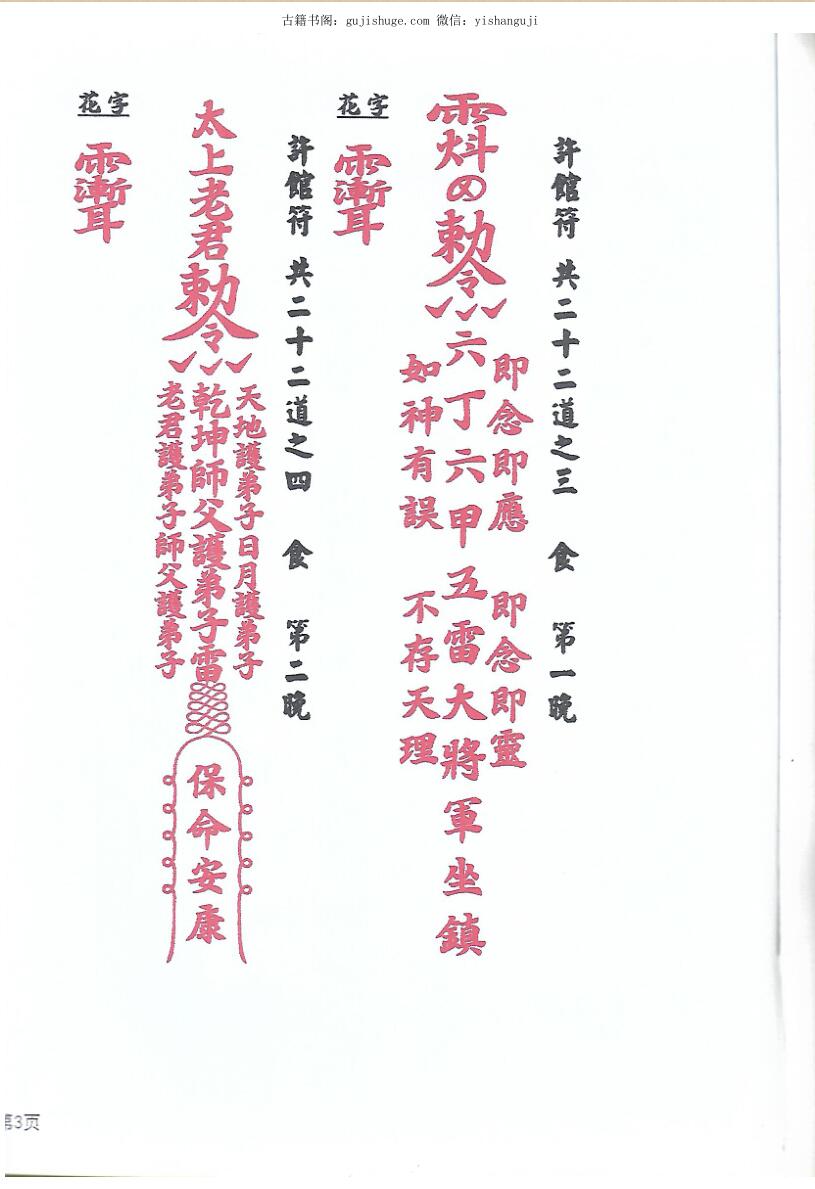 古籍书阁：gujishuge.com 微信：yishanguji
許館符 共二十二道之三 食 第一晚
即念即應 即念即靈
勅令 六丁六甲五雷大將軍坐鎮
如神有誤 不存天理
花字
許館符 共二十二道之四 食 第二晚
天地護弟子日月護弟子
太上老君勅令 乾坤師父護弟子雷
保命安康
老君護弟子師父護弟子
花字
第3页